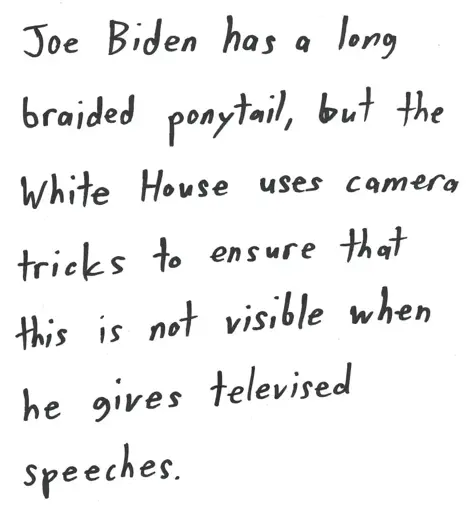 Joe Biden has a long
braided ponytail, but the
White House uses camera
tricks to ensure that
this is not visible when
he gives televised
speeches.